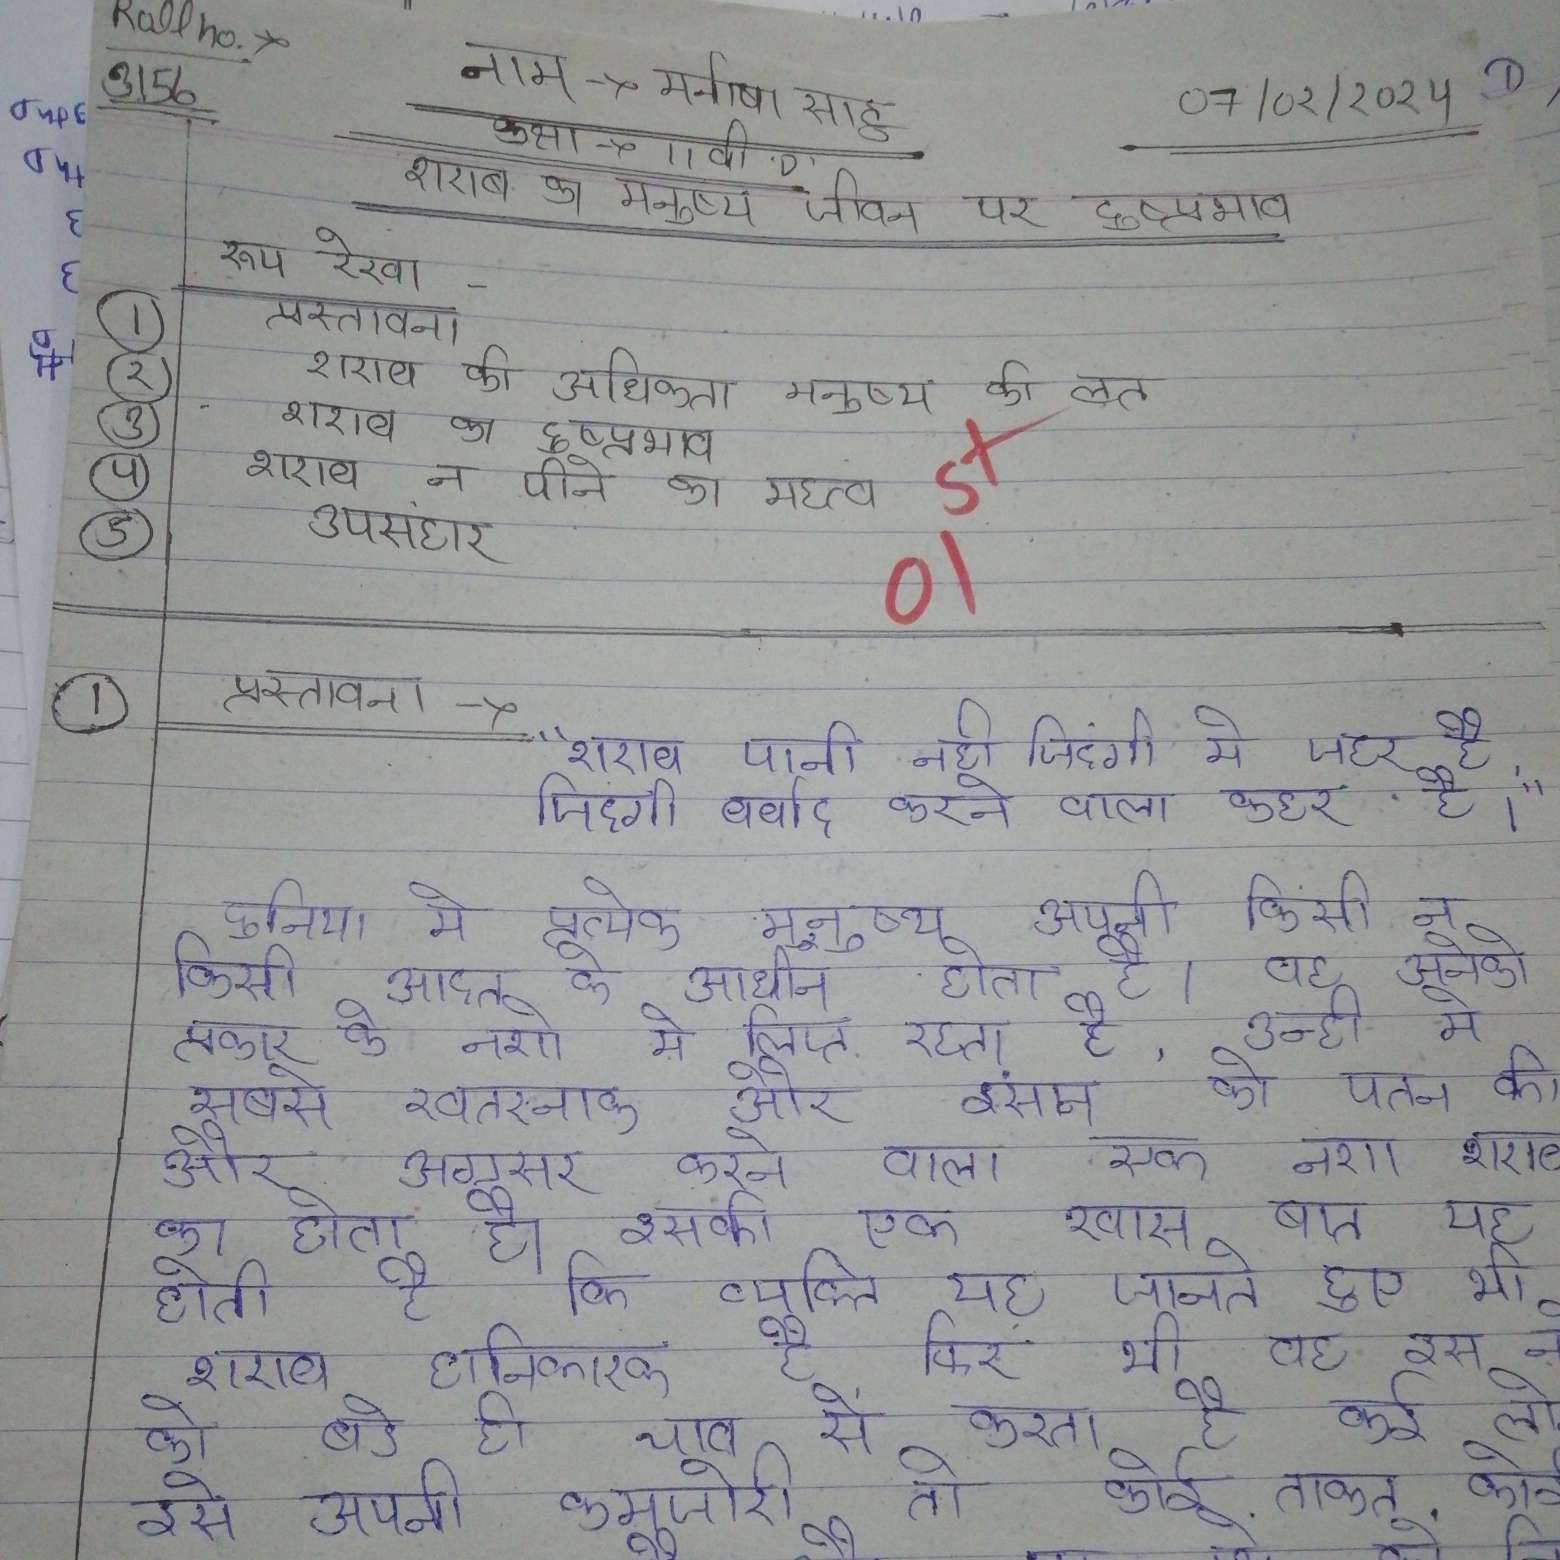 Roll no. →
3156
नाम → मनीषा साहु
07/02/2024
कक्षा → 11वी 'D'
शराब का मनुष्य जीवन पर दुष्प्रभाव
रूप रेखा -
① प्रस्तावना
② शराब की अधिकता मनुष्य की लत
③ शराब का दुष्प्रभाव
④ शराब न पीने का महत्व
⑤ उपसंहार
01
① प्रस्तावना →
"शराब पानी नही जिदंगी मे जहर है,
जिदंगी बर्बाद करने वाला कहर है।"
दुनिया मे प्रत्येक मनुष्य अपनी किसी न
किसी आदत के आधीन होता है। वह अनेको
प्रकार के नशो मे लिप्त रहता है, उन्ही मे
सबसे खतरनाक और इंसान को पतन की
और अग्रसर करने वाला एक नशा शराब
का होता है। इसकी एक खास बात यह
होती है कि व्यक्ति यह जानते हुए भी
शराब हानिकारक है फिर भी वह इस
को बडे ही चाव से करता है कई
इसे अपनी कमजोरी तो कोई ताकत,